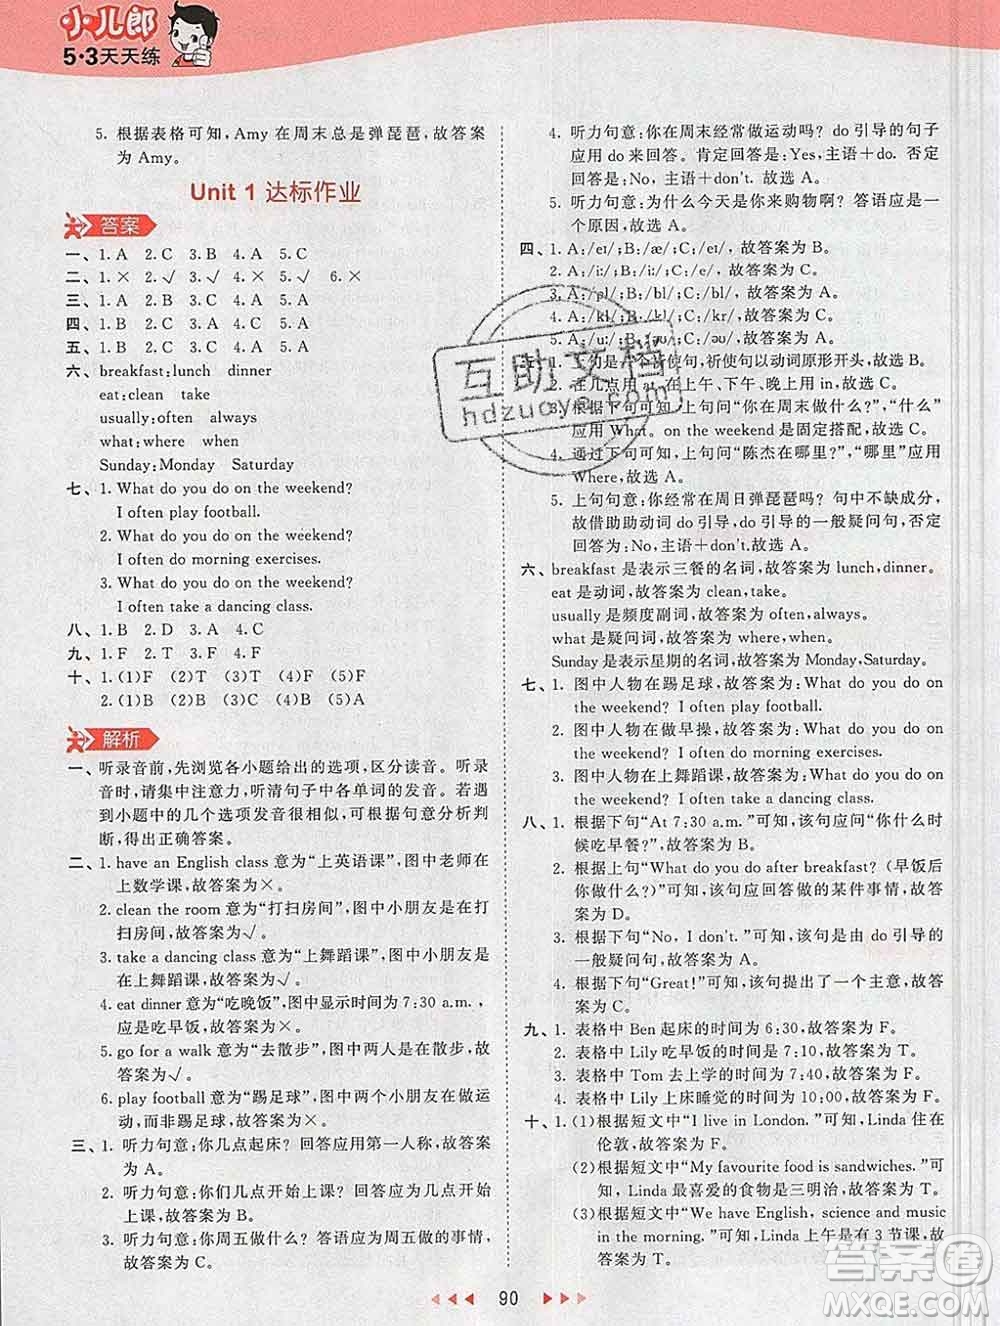 小儿郎
5·3天天练
5. 根据表格可知,Amy 在周末总是弹琵琶,故答案
为 Amy。
Unit 1 达标作业
答案
一、1. A 2. C 3. B 4. A 5. C
二、1. × 2. √ 3. √ 4. × 5. √ 6. ×
三、1. A 2. B 3. C 4. A 5. A
四、1. B 2. A 3. A 4. A 5. A
五、1. B 2. A 3. C 4. A 5. A
六、breakfast:lunch dinner
eat:clean take
usually:often always
what:where when
Sunday:Monday Saturday
七、1. What do you do on the weekend?
I often play football.
2. What do you do on the weekend?
I often do morning exercises.
3. What do you do on the weekend?
I often take a dancing class.
八、1. B 2. D 3. A 4. C
九、1. F 2. T 3. F 4. F
十、1. (1)F (2)T (3)T (4)F (5)F
2. (1)B (2)C (3)B (4)B (5)A
解析
一、听录音前,先浏览各小题给出的选项,区分读音。听录
音时,请集中注意力,听清句子中各单词的发音。若遇
到小题中的几个选项发音很相似,可根据句意分析判
断,得出正确答案。
二、1. have an English class 意为“上英语课”,图中老师在
上数学课,故答案为×。
2. clean the room 意为“打扫房间”,图中小朋友是在打
扫房间,故答案为√。
3. take a dancing class 意为“上舞蹈课”,图中小朋友
在上舞蹈课,故答案为√。
4. eat dinner 意为“吃晚饭”,图中显示时间为 7:30 a.m.,
应是吃早饭,故答案为×。
5. go for a walk 意为“去散步”,图中两人是在散步,故
答案为√。
6. play football 意为“踢足球”,图中小朋友在做运
动,而非踢足球,故答案为×。
三、1. 听力句意:你几点起床? 回答应用第一人称,故答案
为 A。
2. 听力句意:你们几点开始上课? 回答应为几点开始
上课,故答案为 B。
3. 听力句意:你周五做什么? 答语应为要做的事情,
故答案为 C。
4. 听力句意:你在周末经常做运动吗? do 引导的句子
应用 do 来回答。肯定回答为:Yes,主语+do. 否定
回答为:No,主语+don't. 故选 A。
5. 听力句意:为什么今天是你来购物啊? 答语应为
一个原因,故选 A。
四、1. A:/eɪ/;B:/æ/;C:/eɪ/,故答案为 B。
2. A:/iː/;B:/iː/;C:/e/,故答案为 A。
3. A:/pl/;B:/bl/;C:/bl/,故答案为 A。
4. A:/kl/;B:/kl/;C:/kr/,故答案为 A。
5. A:/uː/;B:/əʊ/;C:/əʊ/,故答案为 A。
五、1. 上句是个祈使句,祈使句以动词原形开头,故选 B。
2. 在几点用 at,在上午、下午、晚上用 in,故选 A。
3. 根据下句可知,上句问“你在周末做什么?”,“什么”
应用 What。on the weekend 是固定搭配,故选 C。
4. 通过下句可知,上句问“陈杰在哪里?”,“哪里”应用
Where,故选 A。
5. 上句句意:你经常在周日弹琵琶吗? 句中不缺成分,
故借助助动词 do 引导,do 引导的一般疑问句,否定
回答为:No,主语+don't. 故选 A。
六、breakfast 是表示三餐的名词,故答案为 lunch,dinner。
eat 是动词,故答案为 clean,take。
usually 是频度副词,故答案为 often,always。
what 是疑问词,故答案为 where,when。
Sunday 是表示星期的名词,故答案为 Monday,Saturday。
七、1. 图中人物在踢足球,故答案为:What do you do on
the weekend? I often play football.
2. 图中人物在做早操,故答案为:What do you do on
the weekend? I often do morning exercises.
3. 图中人物在上舞蹈课,故答案为:What do you do on
the weekend? I often take a dancing class.
八、1. 根据下句“At 7:30 a.m.”可知,该句应问“你什么时
候吃早餐?”,故答案为 B。
2. 根据上句“What do you do after breakfast? (早饭后
你做什么?)”可知,该句应回答做的某件事情,故答
案为 D。
3. 根据下句“No, I don't.”可知,该句是由 do 引导的
一般疑问句,故答案为 A。
4. 根据下句“Great!”可知,该句提出了一个主意,故答
案为 C。
九、1. 表格中 Ben 起床的时间为 6:30,故答案为 F。
2. 表格中 Lily 吃早饭的时间是 7:10,故答案为 T。
3. 表格中 Tom 去上学的时间为 7:30,故答案为 F。
4. 表格中 Lily 上床睡觉的时间为 10:00,故答案为 F。
十、1. (1)根据短文中“I live in London.”可知,Linda 住在
伦敦,故答案为 F。
(2)根据短文中“My favourite food is sandwiches.”可
知,Linda 最喜爱的食物是三明治,故答案为 T。
(3)根据短文中“We have English, science and music
in the morning.”可知,Linda 上午是有 3 节课,故
答案为 T。
90
互助文档
hdzuoye.com
答案圈
MXQE.COM